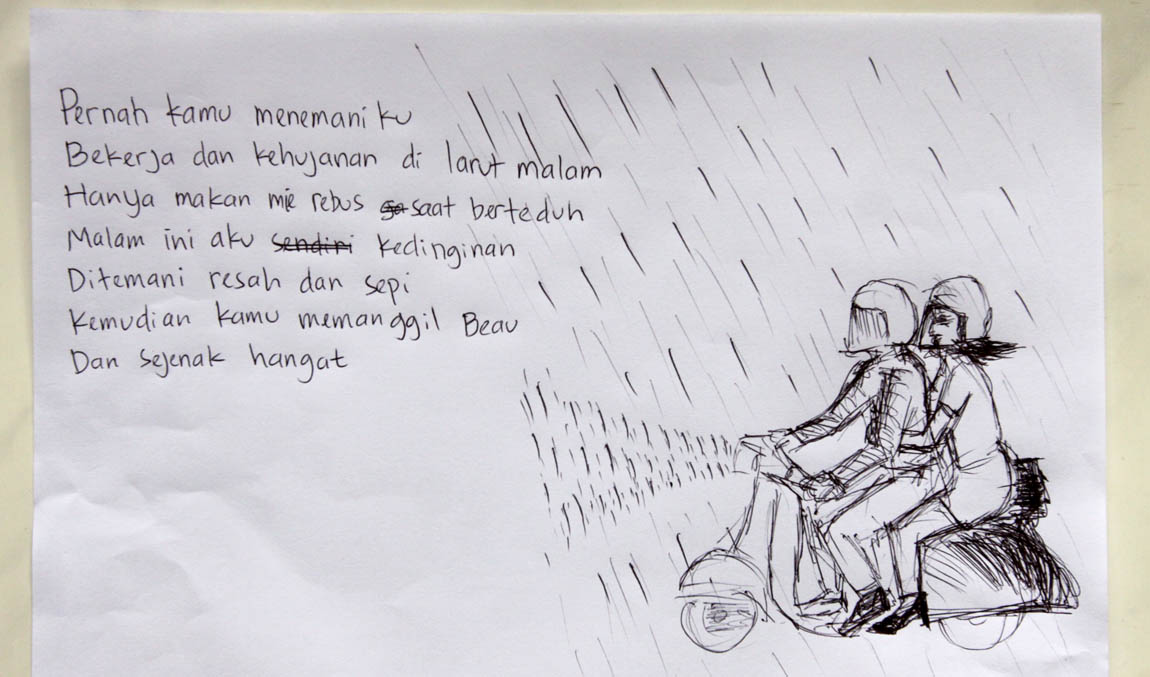 Pernah kamu menemaniku
Bekerja dan kehujanan di larut malam
Hanya makan mie rebus saat berteduh
Malam ini aku sendiri kedinginan
Ditemani resah dan sepi
Kemudian kamu memanggil Beau
Dan sejenak hangat